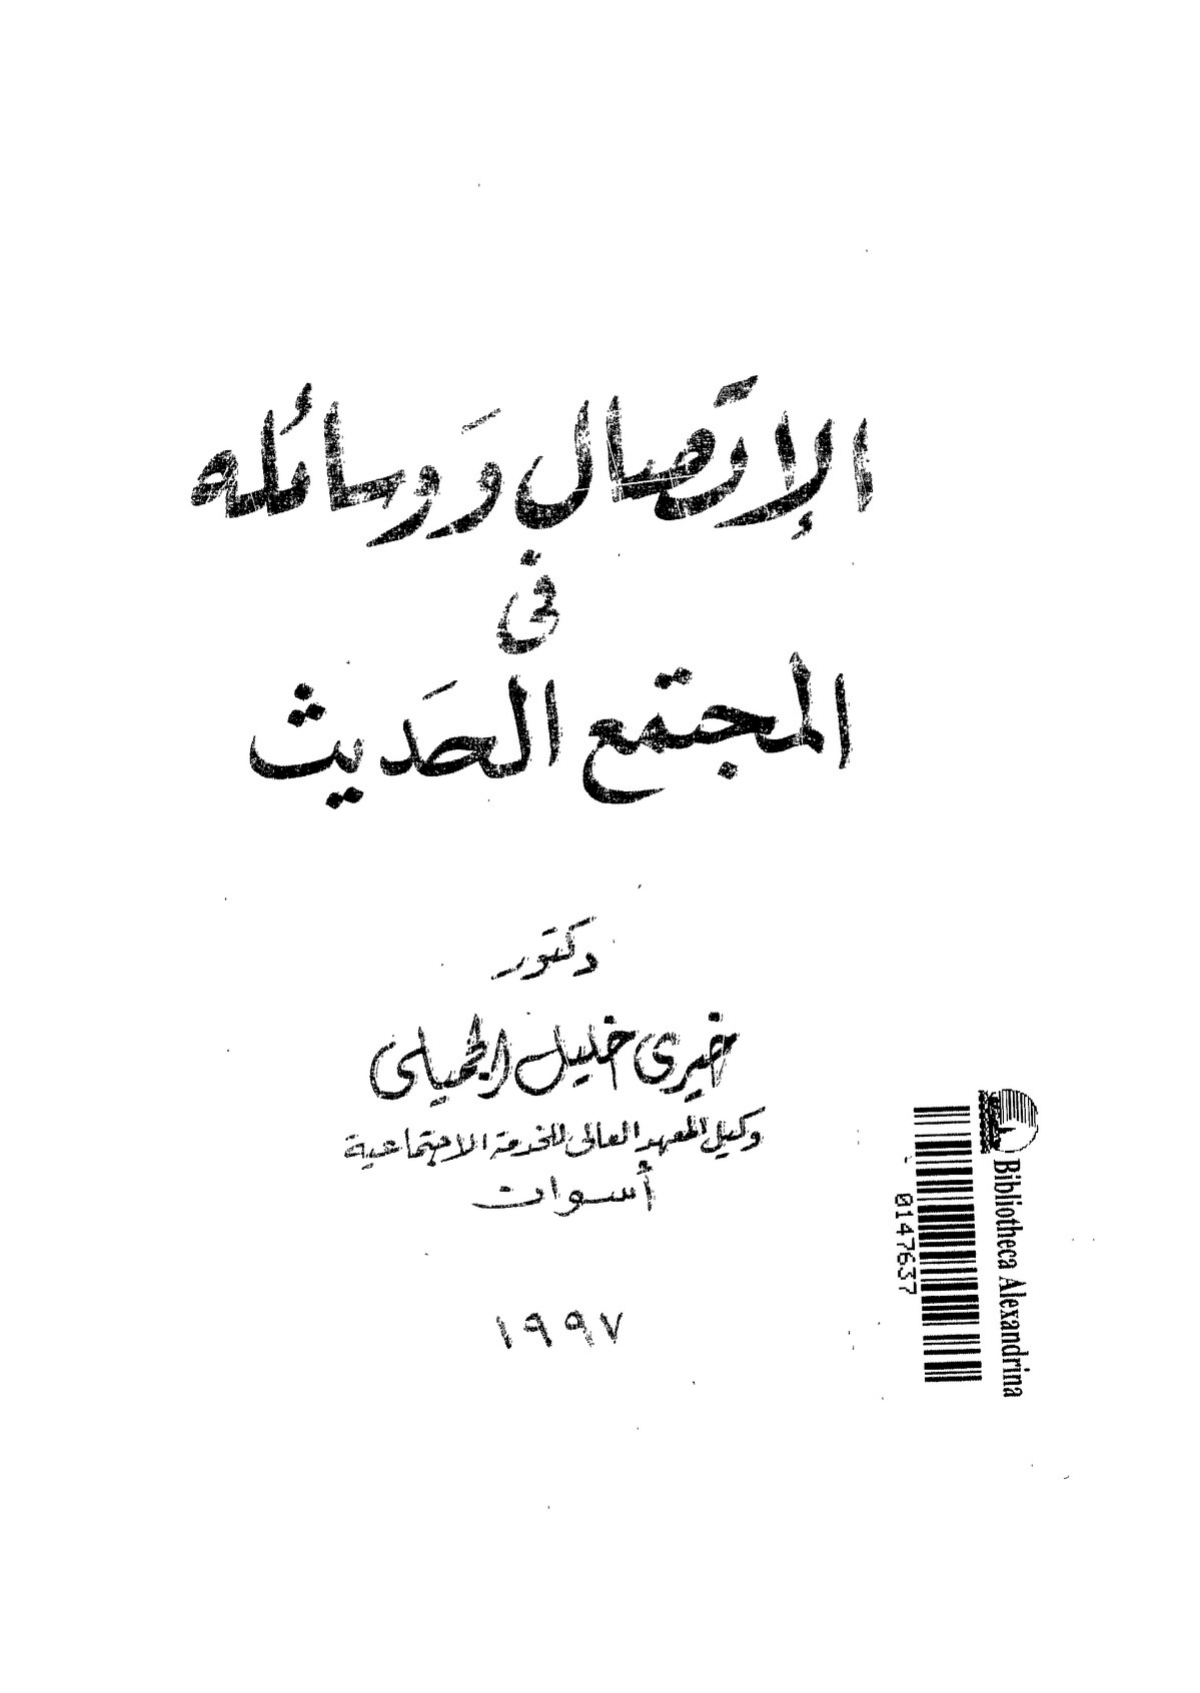 الإتصال ووسائله
في
المجتمع الحديث
دكتور
خيرى خليل الجميلى
وكيل المعهد العالى للخدمة الاجتماعية
أسوان
١٩٩٧
Bibliotheca Alexandrina
0147637